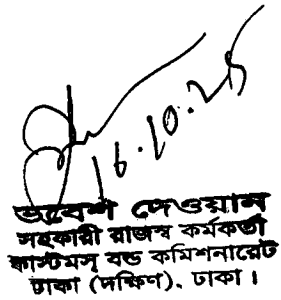 16.10.25
ভবেশ দেওয়ান
সহকারী রাজস্ব কর্মকর্তা
কাস্টমস্ বন্ড কমিশনারেট
ঢাকা (দক্ষিণ), ঢাকা।